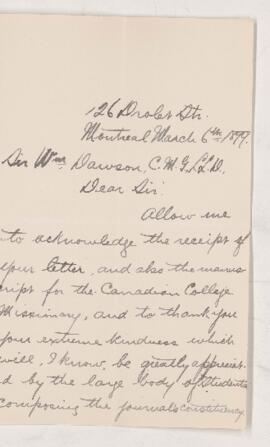 126 Drolet Str.
Montreal March 6th 1899.
Sir Wm Dawson, C.M.G. LL.D.
Dear Sir:
Allow me
to acknowledge the receipt of
your letter, and also the manus
cript for the Canadian College
Missionary, and to thank you
your extreme kindness which
will, I know, be greatly appreciat-
d by the large body of students
composing the journals constituency.